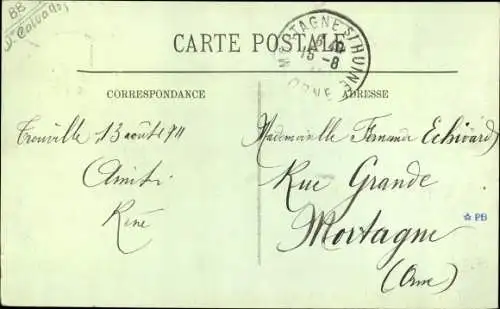 88
D. Calvados
CARTE POSTALE
MORTAGNE S/HUINE
15-8
ORNE
CORRESPONDANCE
ADRESSE
Trouville, 13 août 1911
Amitié
René
Mademoiselle Fernande Echivard
Rue Grande
Mortagne
(Orne)
☆ PB